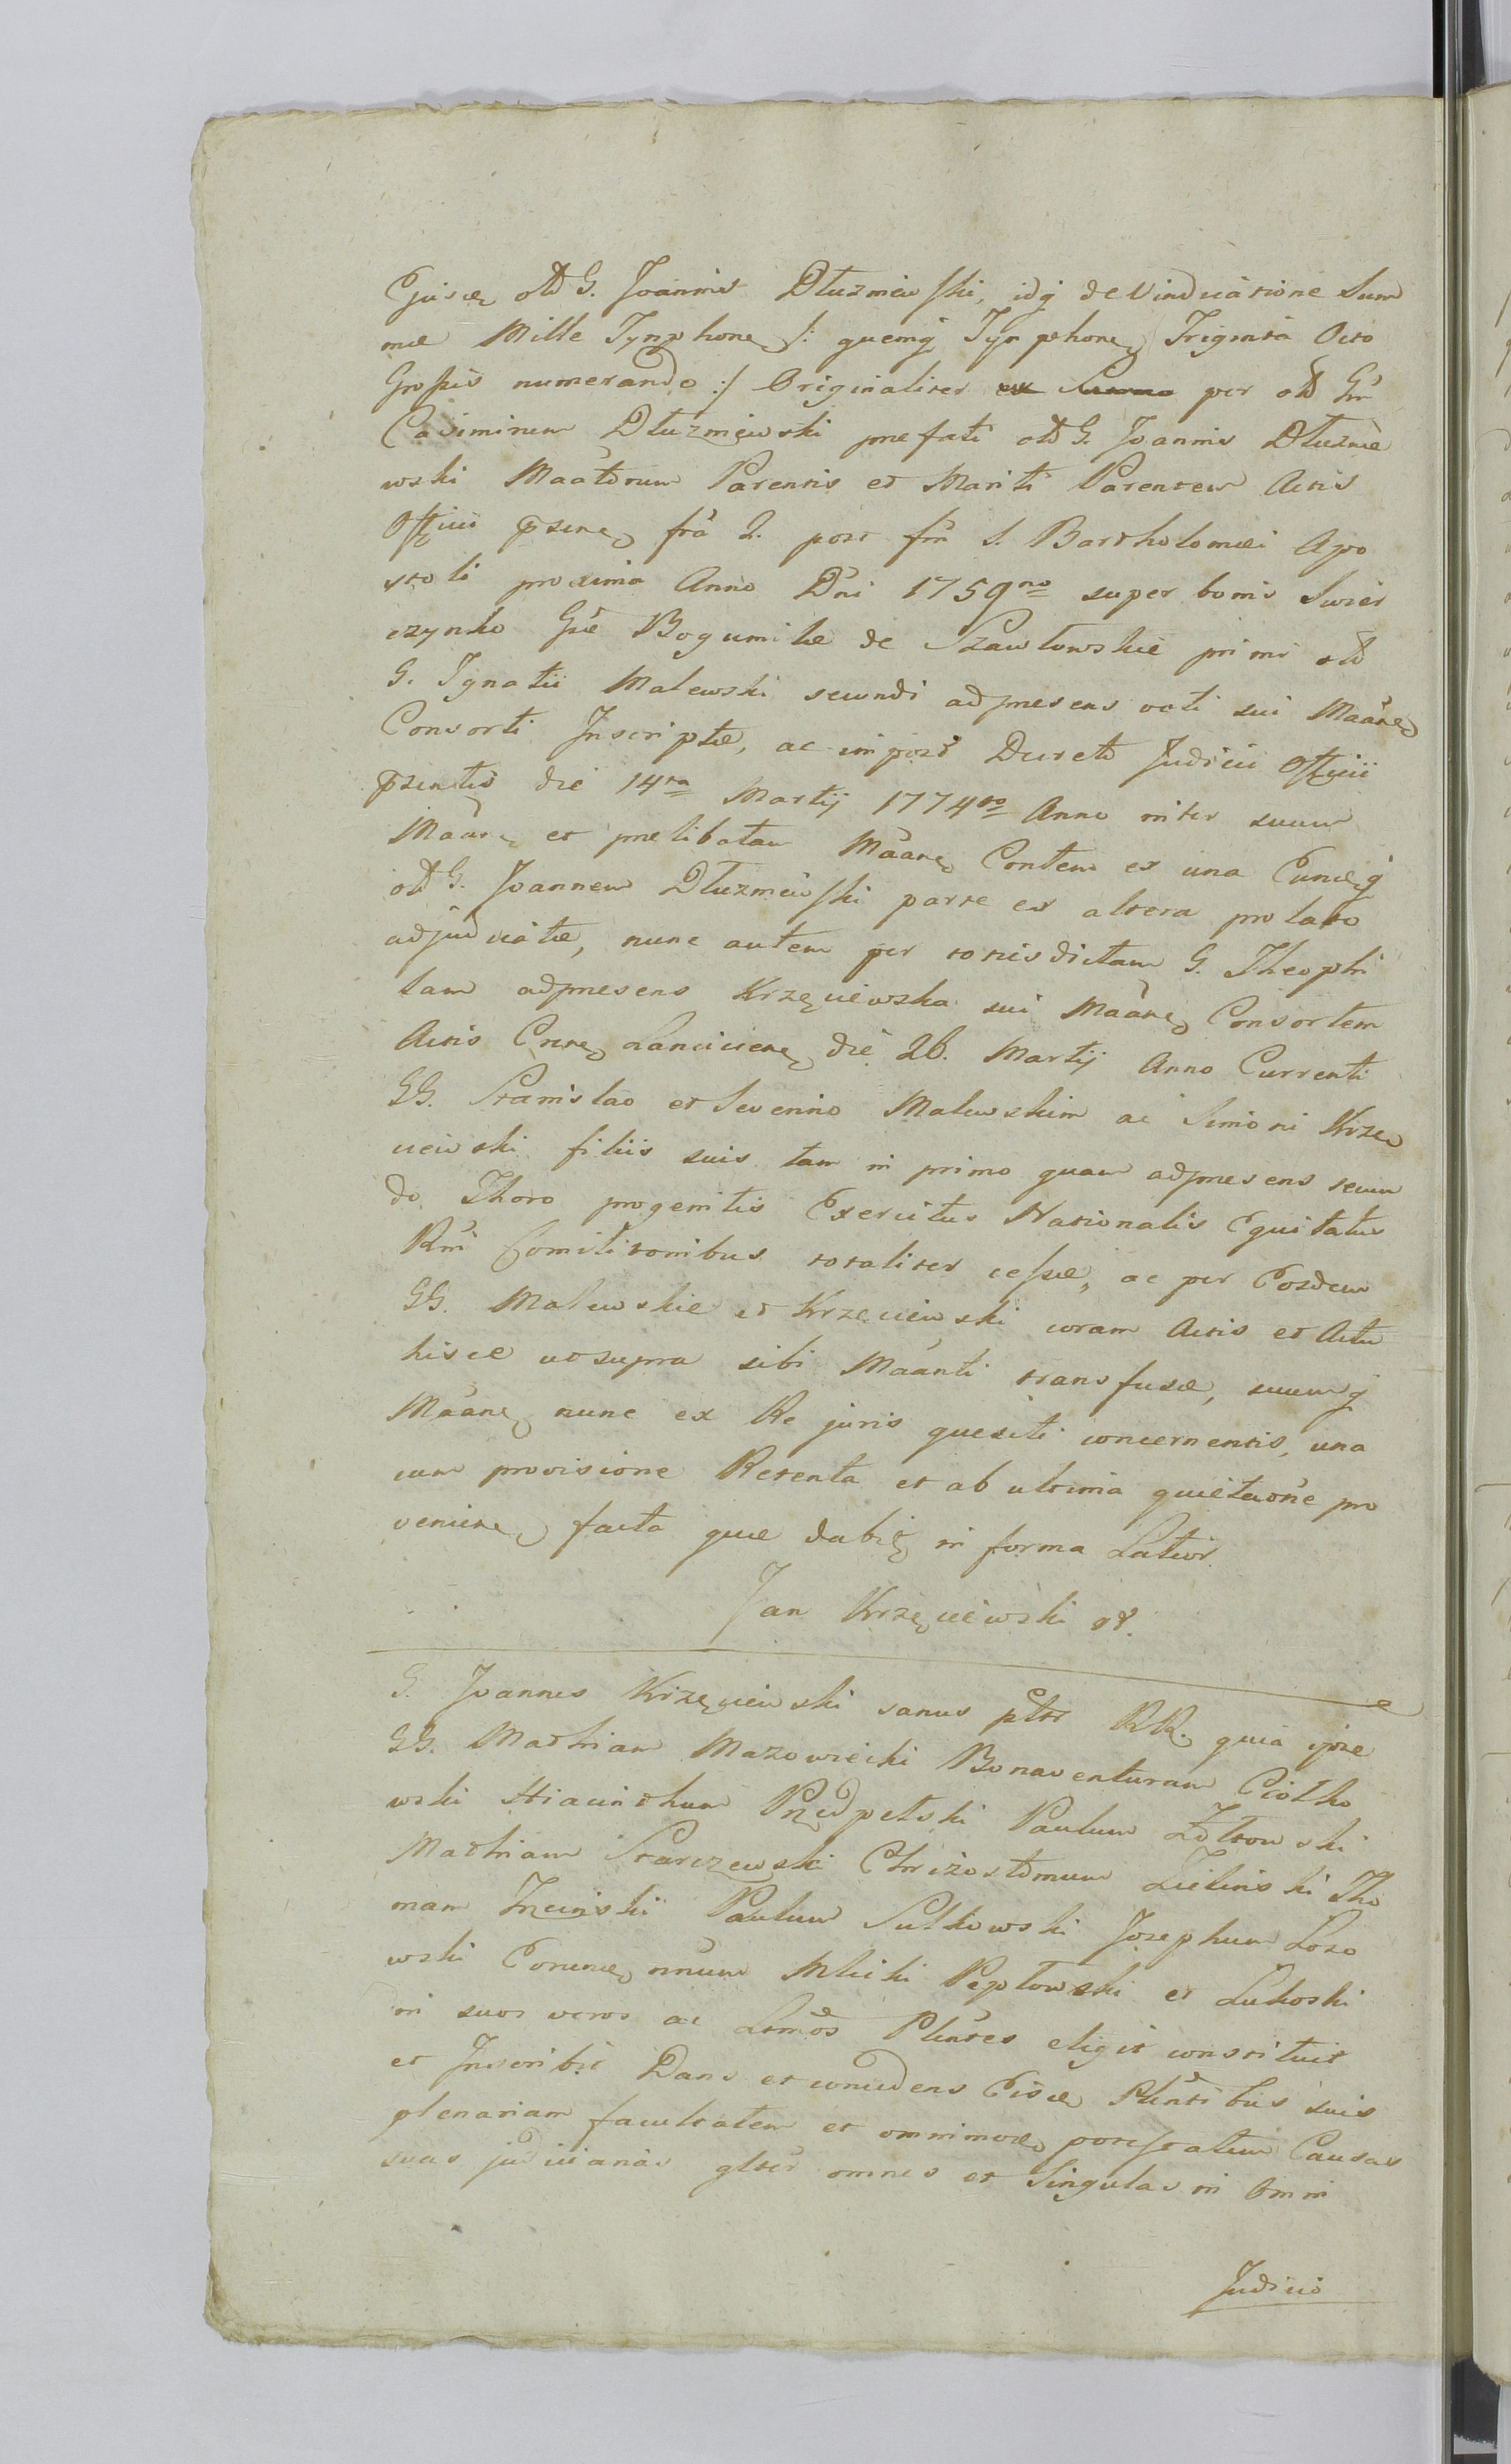 Ejusq olt G. Joannis Dłuzniewski, idq de Vindicatione Sum
mæ Mille Tynphone /: quemq Tynphone Triginta Octo
Grossis numerando :/ Originaliter ex Summa per olt Gm
Casimirum Dłuzniewski præfati olt G. Joannis Dłuznie
wski Maatorum Parentis et Mariti Parentem Actis
Officii psenq fra 2. post fm S. Bartholomæi Apo
stoli proxima Anno Dni 1759no super bonis Swier
czynko Gsæ Bogumilæ de Szawłowskie primi olt
G. Ignatii Malewski secundi adpræsens voti sui Maanq
Consorti Inscriptæ, ac impost Decreto Judicii Officii
psentis die 14ta Martij 1774to Anno inter suum
Maanq et prælibatam Maanq Contem ex una Eundq
olt G. Joannem Dłuzniewski parte ex altera prolato
adjudicatæ, nunc autem per totiesdictam G. Theophi
lam adpræsens Krzęciewska sui Maanq Consortem
Actis Cnenq Lanciciene die 26. Martij Anno Currenti
GG. Stanislao et Severino Malewskim ac Simoni Krzę
ciewski filiis suis tam in primo quam adpræsens secun
do Thoro progenitis Exercitus Nationalis Equitatus
Rni Comilitonibus totaliter cessæ, ac per Eosdem
GG. Malewskie et Krzęciewski coram Actis et Actu
hisce utsupra sibi Maanti transfusæ, suumq
Maanq nunc ex Re juris quæsiti concernentis, una
cum provisione Retenta et ab ultima quietaone pro
veniene facta quæ dabiq in forma Latior.
Jan Krzęciewski
G. Joannes Krzęciewski sanus pltr RR. quia ipse
GG. Mathiam Mazowiecki Bonaventuram Ciółko
wski Hiacinthum Przedpełski Paulum Zółtowski
Mathiam Starczewski Chrizostomum Zielinski Tho
mam Paulum Sulkowski Josephum Loso
wski Eorunq nnum Mlicki Pepłowski et Lukoski
in suos veros ac Ltmos Plentes eligit constituit
et Inscribit Dans et concedens Eisq Plentibus suis
plenariam facultatem et omnimodq potestatem Causas
suas judiciarias gltr omnes et Singulas in Omni
Judicio